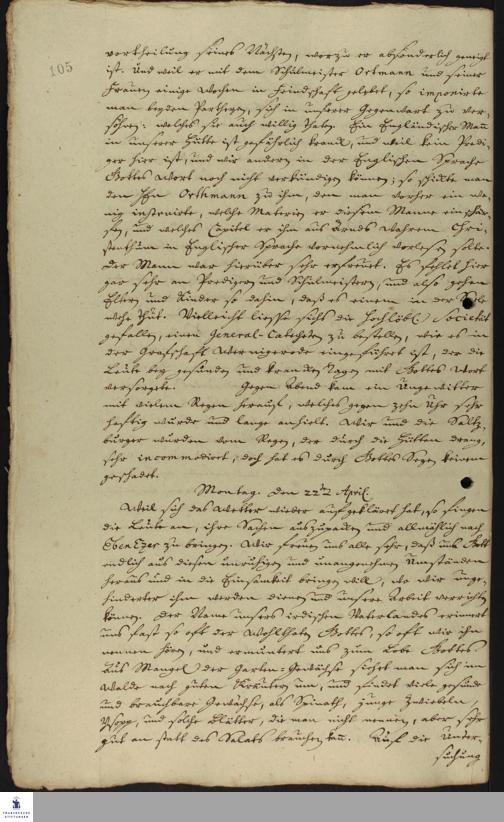 105
vertheilung seines Nächsten, worzu er absonderlich geneigt
ist. Und weil er mit dem Schulmeister Ortmann und seiner
Frauen einige Wochen in Feindschaft gelebet, so
man beyden Partheyen, sich in unserer Gegenwart zu ver-
söhnen: welches sie auch willig thaten. Ein Engländischer Mann
in unserer Hütte ist gefährlich kranck, und weil kein Predi-
ger hier ist, und wir andern in der Englischen Sprache
Gottes Wort noch nicht verkündigen können; so schickte man
den Hn Orthmann zu ihm, dem man vorher ein we-
nig instruirte, welche Materien er diesem Manne einschär-
fen, und welches Capitel er ihm aus Arnds Wahrem Chri-
stenthum in Englischer Sprache vornehmlich vorlesen solte.
Der Mann war hierüber sehr erfreuet. Es fehlet hier
gar sehr an Predigern und Schulmeistern, und also gehen
Eltern und Kinder so dahin, daß es einem in der Seele
wehe thut. Vielleicht liesse sichs die Hochlöbl. Societät
gefallen, einen General-Catecheten zu bestellen, wie es in
der Grafschaft Wernigerode eingeführet ist, der die
Leute bey gesunden und krancken Tagen mit Gottes Wort
versorgete. Gegen Abend kam ein Ungewitter
mit vielem Regen herauf, welches gegen zehn Uhr sehr
heftig wurde und lange anhielt. Wir und die Saltz-
burger wurden vom Regen, der durch die Hütten drang,
sehr incommodiret, doch hat es durch Gottes Segen keinem
geschadet.
Montag. den 22ten April.
Weil sich das Wetter wieder aufgekläret hat, so fingen
die Leute an, ihre Sachen auszupacken und allmählich nach
Ebenezer zu bringen. Wir freuen uns alle sehr, daß uns Gott
endlich aus diesen unruhigen und unangenehmen Umständen
heraus und in die Einsamkeit bringen will, wo wir unge-
hinderter ihm werden dienen und unsere Arbeit verrichten
können. Der Name unsers irdischen Vaterlandes erinnert
uns fast so oft der Wohlthaten Gottes, so oft wir ihn
nennen hören, und ermuntert uns zum Lobe Gottes.
Aus Mangel der Garten-Gewächse siehet man sich im
Walde nach guten Kräutern um, und findet viele gesunde
und brauchbare Gewächse, als Spinath, junge Zwiebeln,
Ysopp, und solche Blätter, die man nicht nennen, aber sehr
gut an statt des Salats brauchen kan. Auf die Unter-
suchung
FRANCKESCHE
STIFTUNGEN